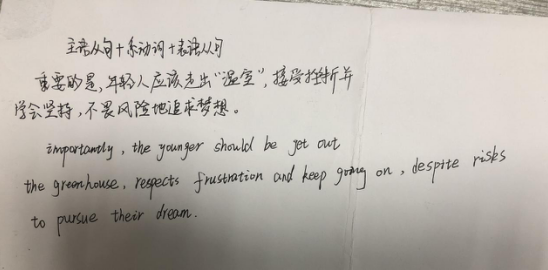 主语从句+系动词+表语从句
重要的是,年轻人应该走出"温室",接受挫折并
学会坚持,不畏风险地追求梦想。
importantly, the younger should be get out
the greenhouse, respects frustration and keep going on, despite risks
to pursue their dream.